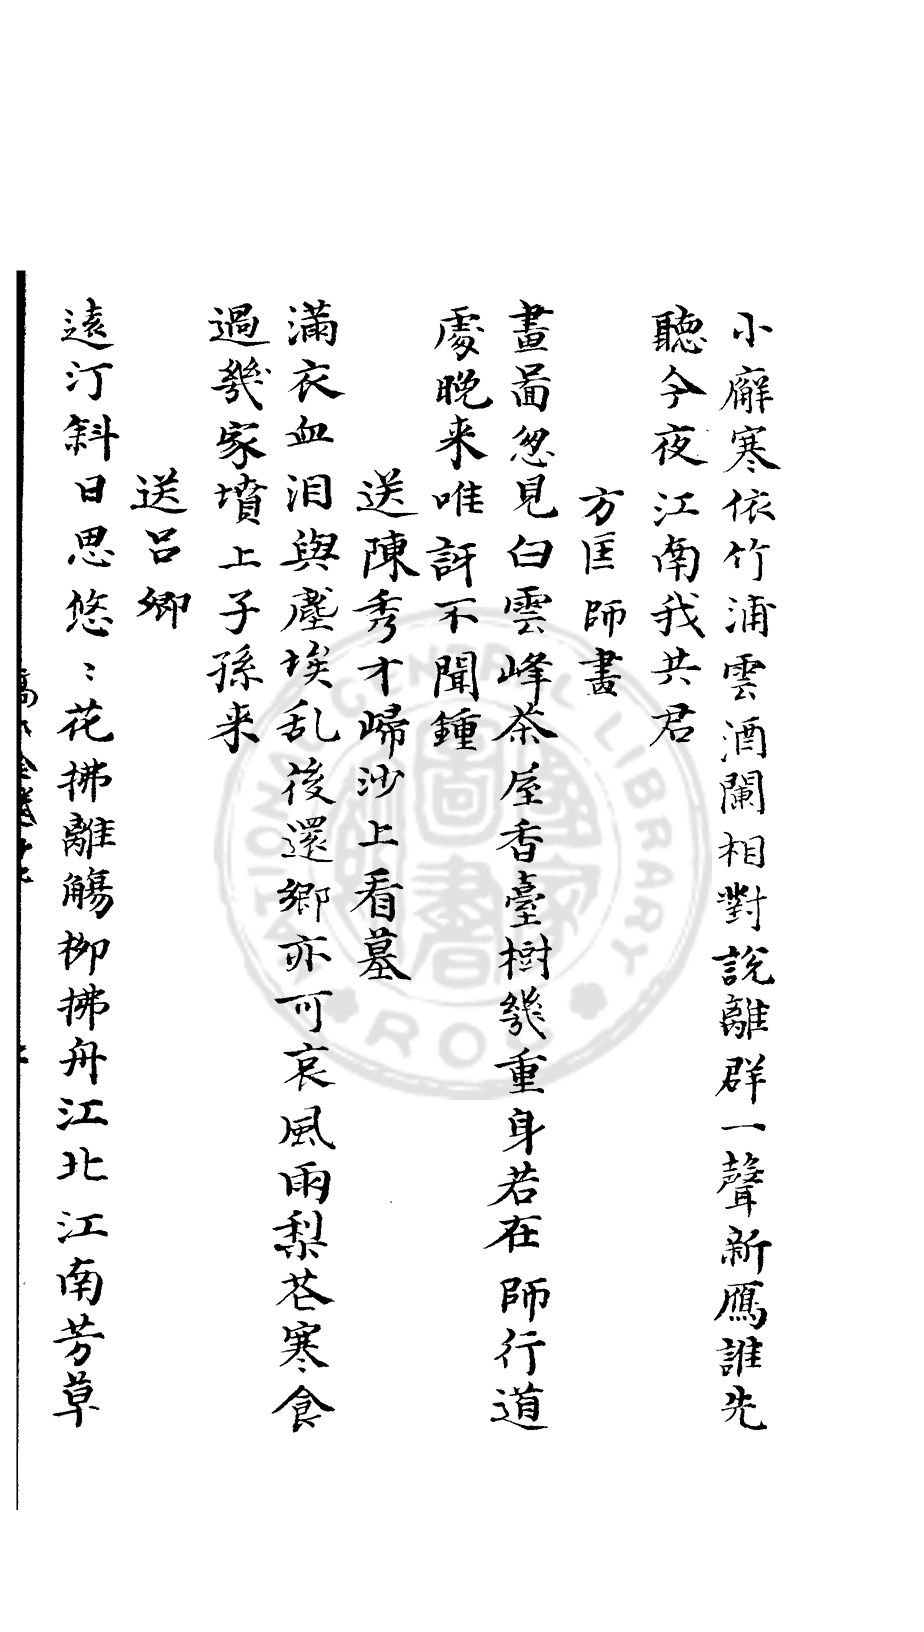 小廨寒依竹浦雲酒闌相對說離群一聲新鴈誰先
聽今夜江南我共君
方匡師畫
畫啚忽見白雲峰茶屋香臺樹幾重身若在師行道
處晚来唯訝不聞鍾
送陳秀才歸沙上看墓
滿衣血泪與塵埃乱後還鄉亦可哀風雨梨花寒食
過幾家墳上子孫来
送呂卿
遠汀斜日思悠〻花拂離觴柳拂舟江北江南芳草
NATIONAL GENERAL LIBRARY
ROC
國家圖書館